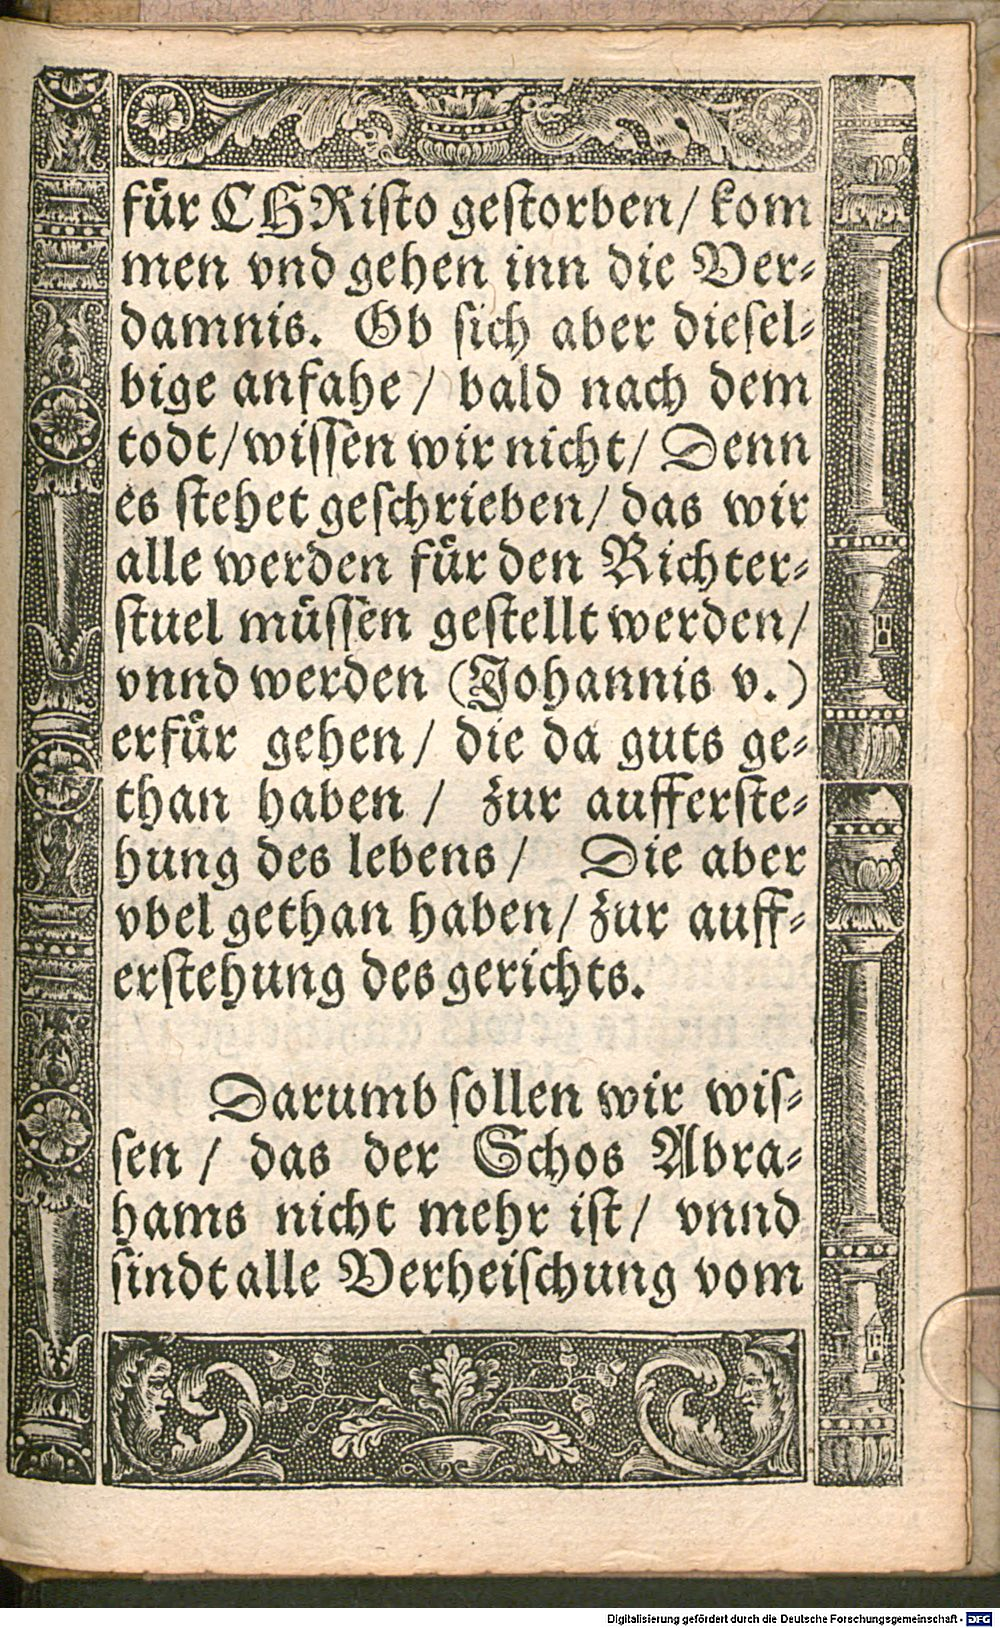 für CHRisto gestorben/ kom
men vnd gehen inn die Ver-
damnis. Ob sich aber diesel-
bige anfahe/ bald nach dem
todt/ wissen wir nicht/ Denn
es stehet geschrieben/ das wir
alle werden für den Richter-
stuel müssen gestellt werden/
vnnd werden (Johannis v.)
erfür gehen/ die da guts ge-
than haben/ zur aufferste-
hung des lebens/ Die aber
vbel gethan haben/ zur auff-
erstehung des gerichts.
Darumb sollen wir wis-
sen/ das der Schos Abra-
hams nicht mehr ist/ vnnd
sindt alle Verheischung vom
Digitalisierung gefördert durch die Deutsche Forschungsgemeinschaft - DFG